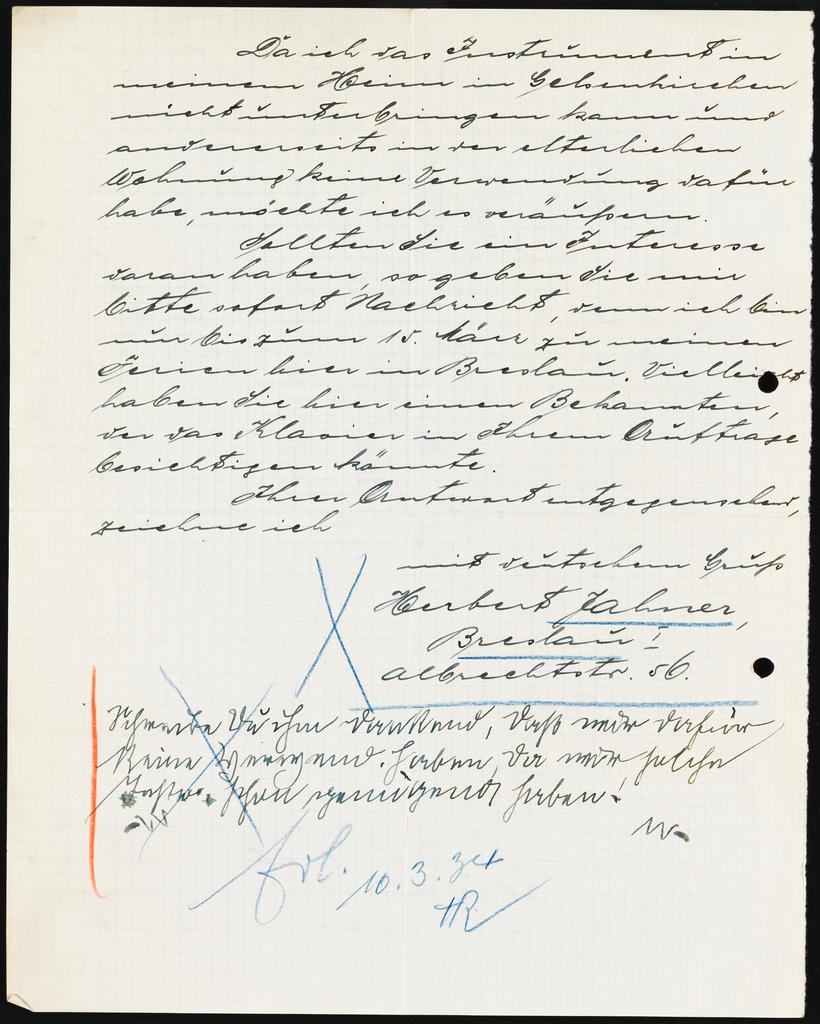 Da ich das Instrument in
meinem Heim in Gelsenkirchen
nicht unterbringen kann und
andererseits in der elterlichen
Wohnung keine Verwendung dafür
habe, möchte ich es veräußern.
Sollten Sie ein Interesse
daran haben, so geben Sie mir
bitte sofort Nachricht, denn ich bin
nur bis zum 15. März zu meinen
Ferien hier in Breslau. Vielleicht
haben Sie hier einen Bekannten,
der das Klavier in Ihrem Auftrage
besichtigen könnte.
Ihrer Antwort entgegensehend,
zeichne ich
mit deutschem Gruß
Herbert Jahner,
Breslau I
Albrechtstr. 56.
Schreibe Du ihm dankend, daß wir dafür
keine Verwend. haben, da wir solche
Instr. schon genügend haben!
W
erl. 10.3.34
HR